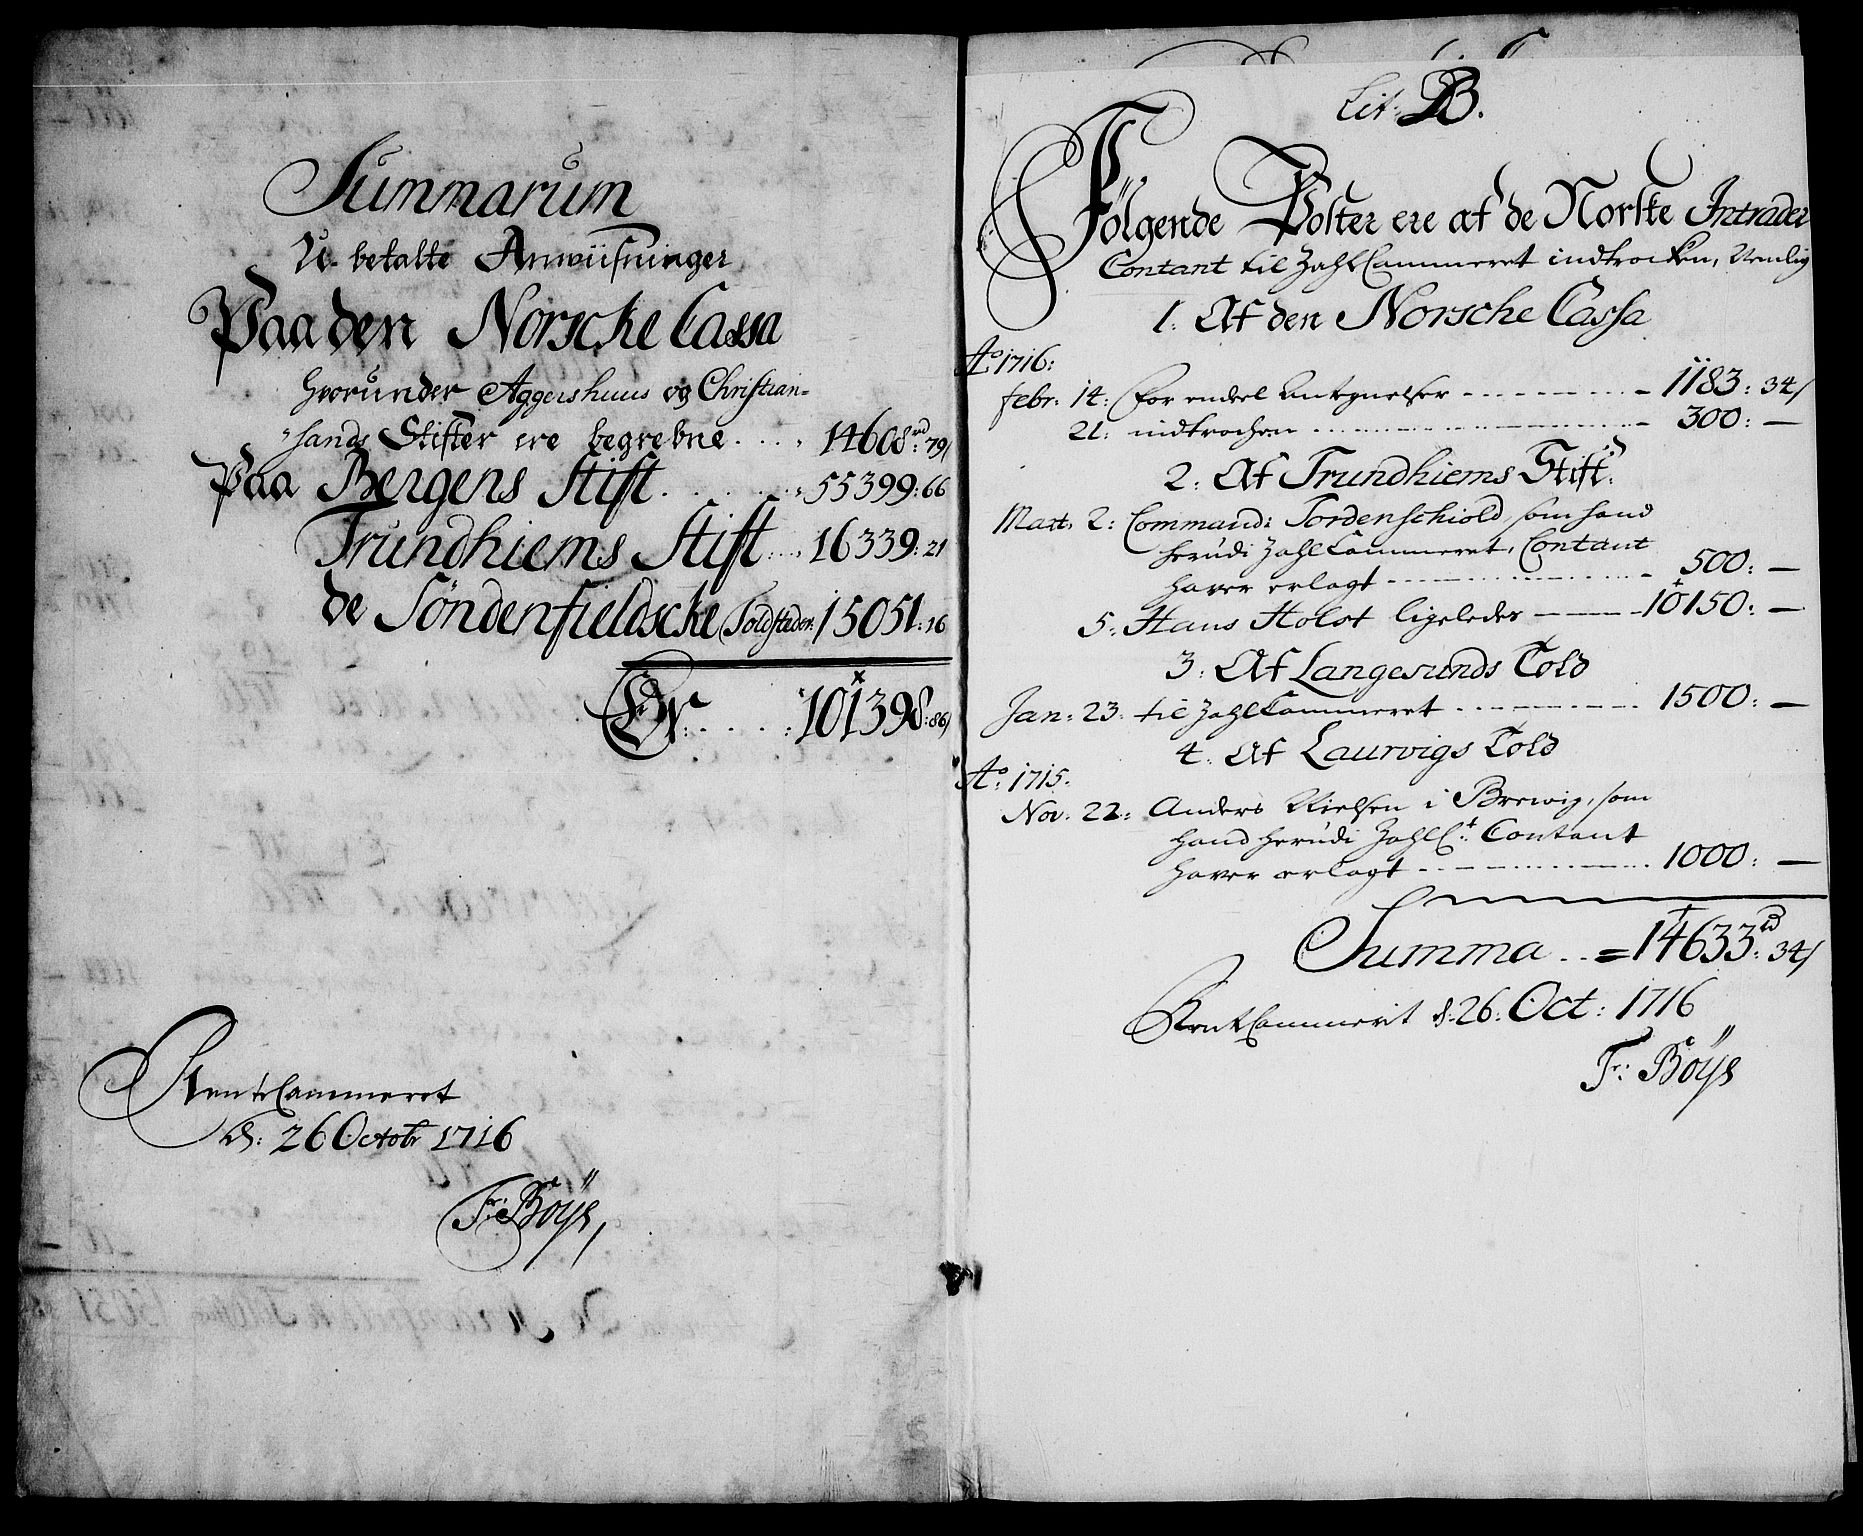 Summarum
U-betalte Anwiisninger
Paa den Norscke Cassa
hvorunder Aggershuus og Christian=
"sands Stifter ere begrebne.... 14608 rd: 79/
Paa Bergens Stift....... 55399: 66
Trundhiems Stift.... 16339: 21
de Söndenfieldscke Toldsteder. 15051: 16
Er ..... 101398: 86/
RenteCammeret
d: 26 Octobr 1716
Fr: Böÿs,
Lit: B.
Fölgende Poster ere af de Norske Intrader
Contant til ZahlCammeret indtrocken, Nemlig
1: Af den Norsche Cassa
Ao 1716:
febr: 14: for endeel Antegnelser - - - - 1183: 34/
21: indtrochen - - - - 300: —
2: Af Trundhiems Stift:
Mart: 2: Command: Tordenschiold, som hand
herudi ZahlCammeret, Contant
haver erlagt - - - - 500: —
5: Hans Holst ligeledes - - - - 10150: —
3: Af Langesunds Told
Jan: 23: til ZahlCammeret - - - - 1500: —
4: Af Laurvigs Told
Ao: 1715.
Nov: 22: Anders Nielsen i Brewig, som
hand herudi ZahlC:t Contant
haver erlagt - - - - 1000: —
Summa .. = 14633 rd: 34/
RentCammerit d: 26: Oct: 1716
Fr: Böÿs